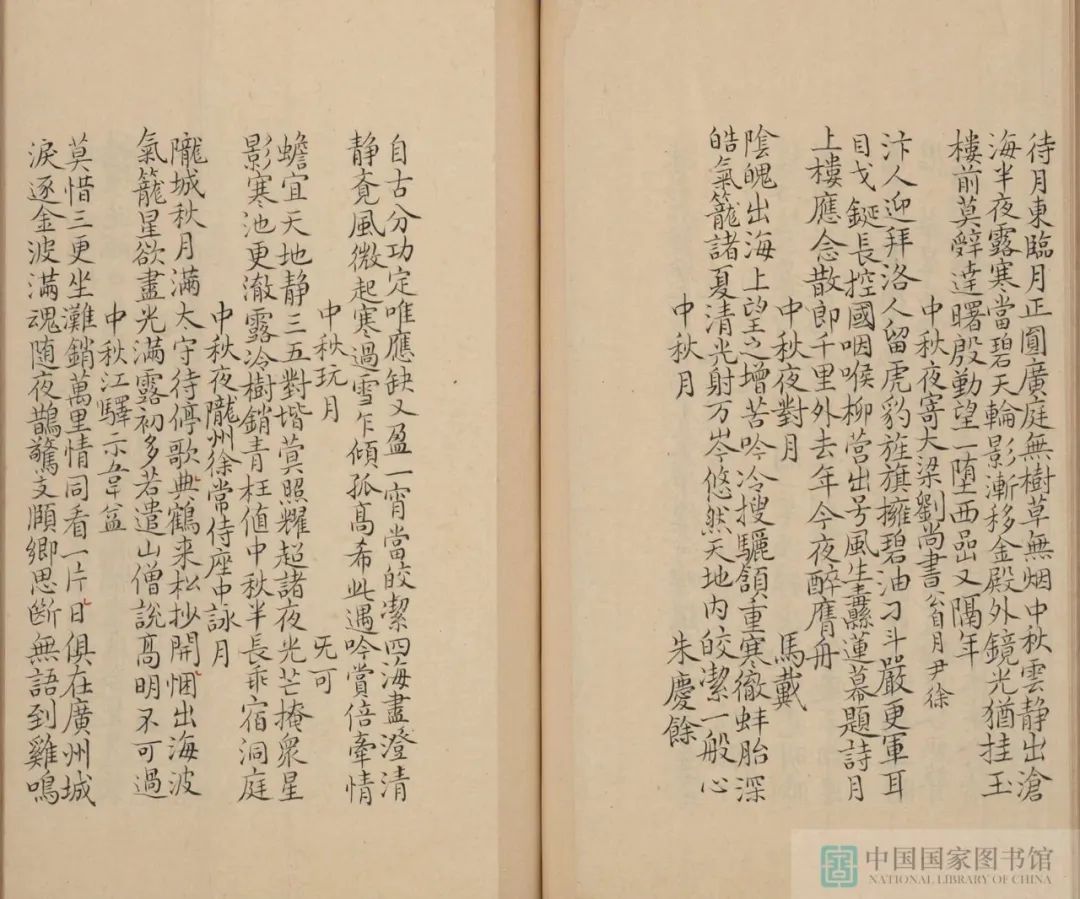 待月東臨月正圓廣庭無樹草無烟中秋雲静出滄
海半夜露寒當碧天輪影漸移金殿外鏡光猶挂玉
樓前莫辤達曙殷勤望一墮西嵒又隔年
中秋夜寄大梁劉尚書 翁自尹徐
汴人迎拜洛人留虎豹旌旗擁碧油刁斗嚴更軍耳
目戈鋋長控國咽喉柳营出号風生纛蓮幕題詩月
上樓應念散郎千里外去年今夜醉膺舟
中秋夜對月 馬戴
陰魄出海上望之增苦吟冷搜驪頷重寒徹蚌胎深
皓氣籠諸夏清光射万岑悠然天地内皎潔一般心
中秋月 朱慶餘
自古分功定唯應缺又盈一宵當皎潔四海盡澄清
静覔風微起寒過雪乍傾孤髙希此遇吟賞倍牽情
中秋玩月 旡可
蟾宜天地静三五對堦蓂照耀超諸夜光芒掩衆星
影寒池更澈露冷樹銷青枉值中秋半長乖宿洞庭
中秋夜隴州徐常侍座中詠月
隴城秋月滿太守待停歌典鶴来松抄開悃出海波
氣籠星欲盡光滿露初多若遣山僧說髙明不可過
中秋江驛示韋益
莫惜三更坐灘銷萬里情同看一片日俱在廣州城
淚逐金波滿魂随夜鵲驚支頤鄉思斷無語到雞鳴
中国国家图书馆
NATIONAL LIBRARY OF CHINA